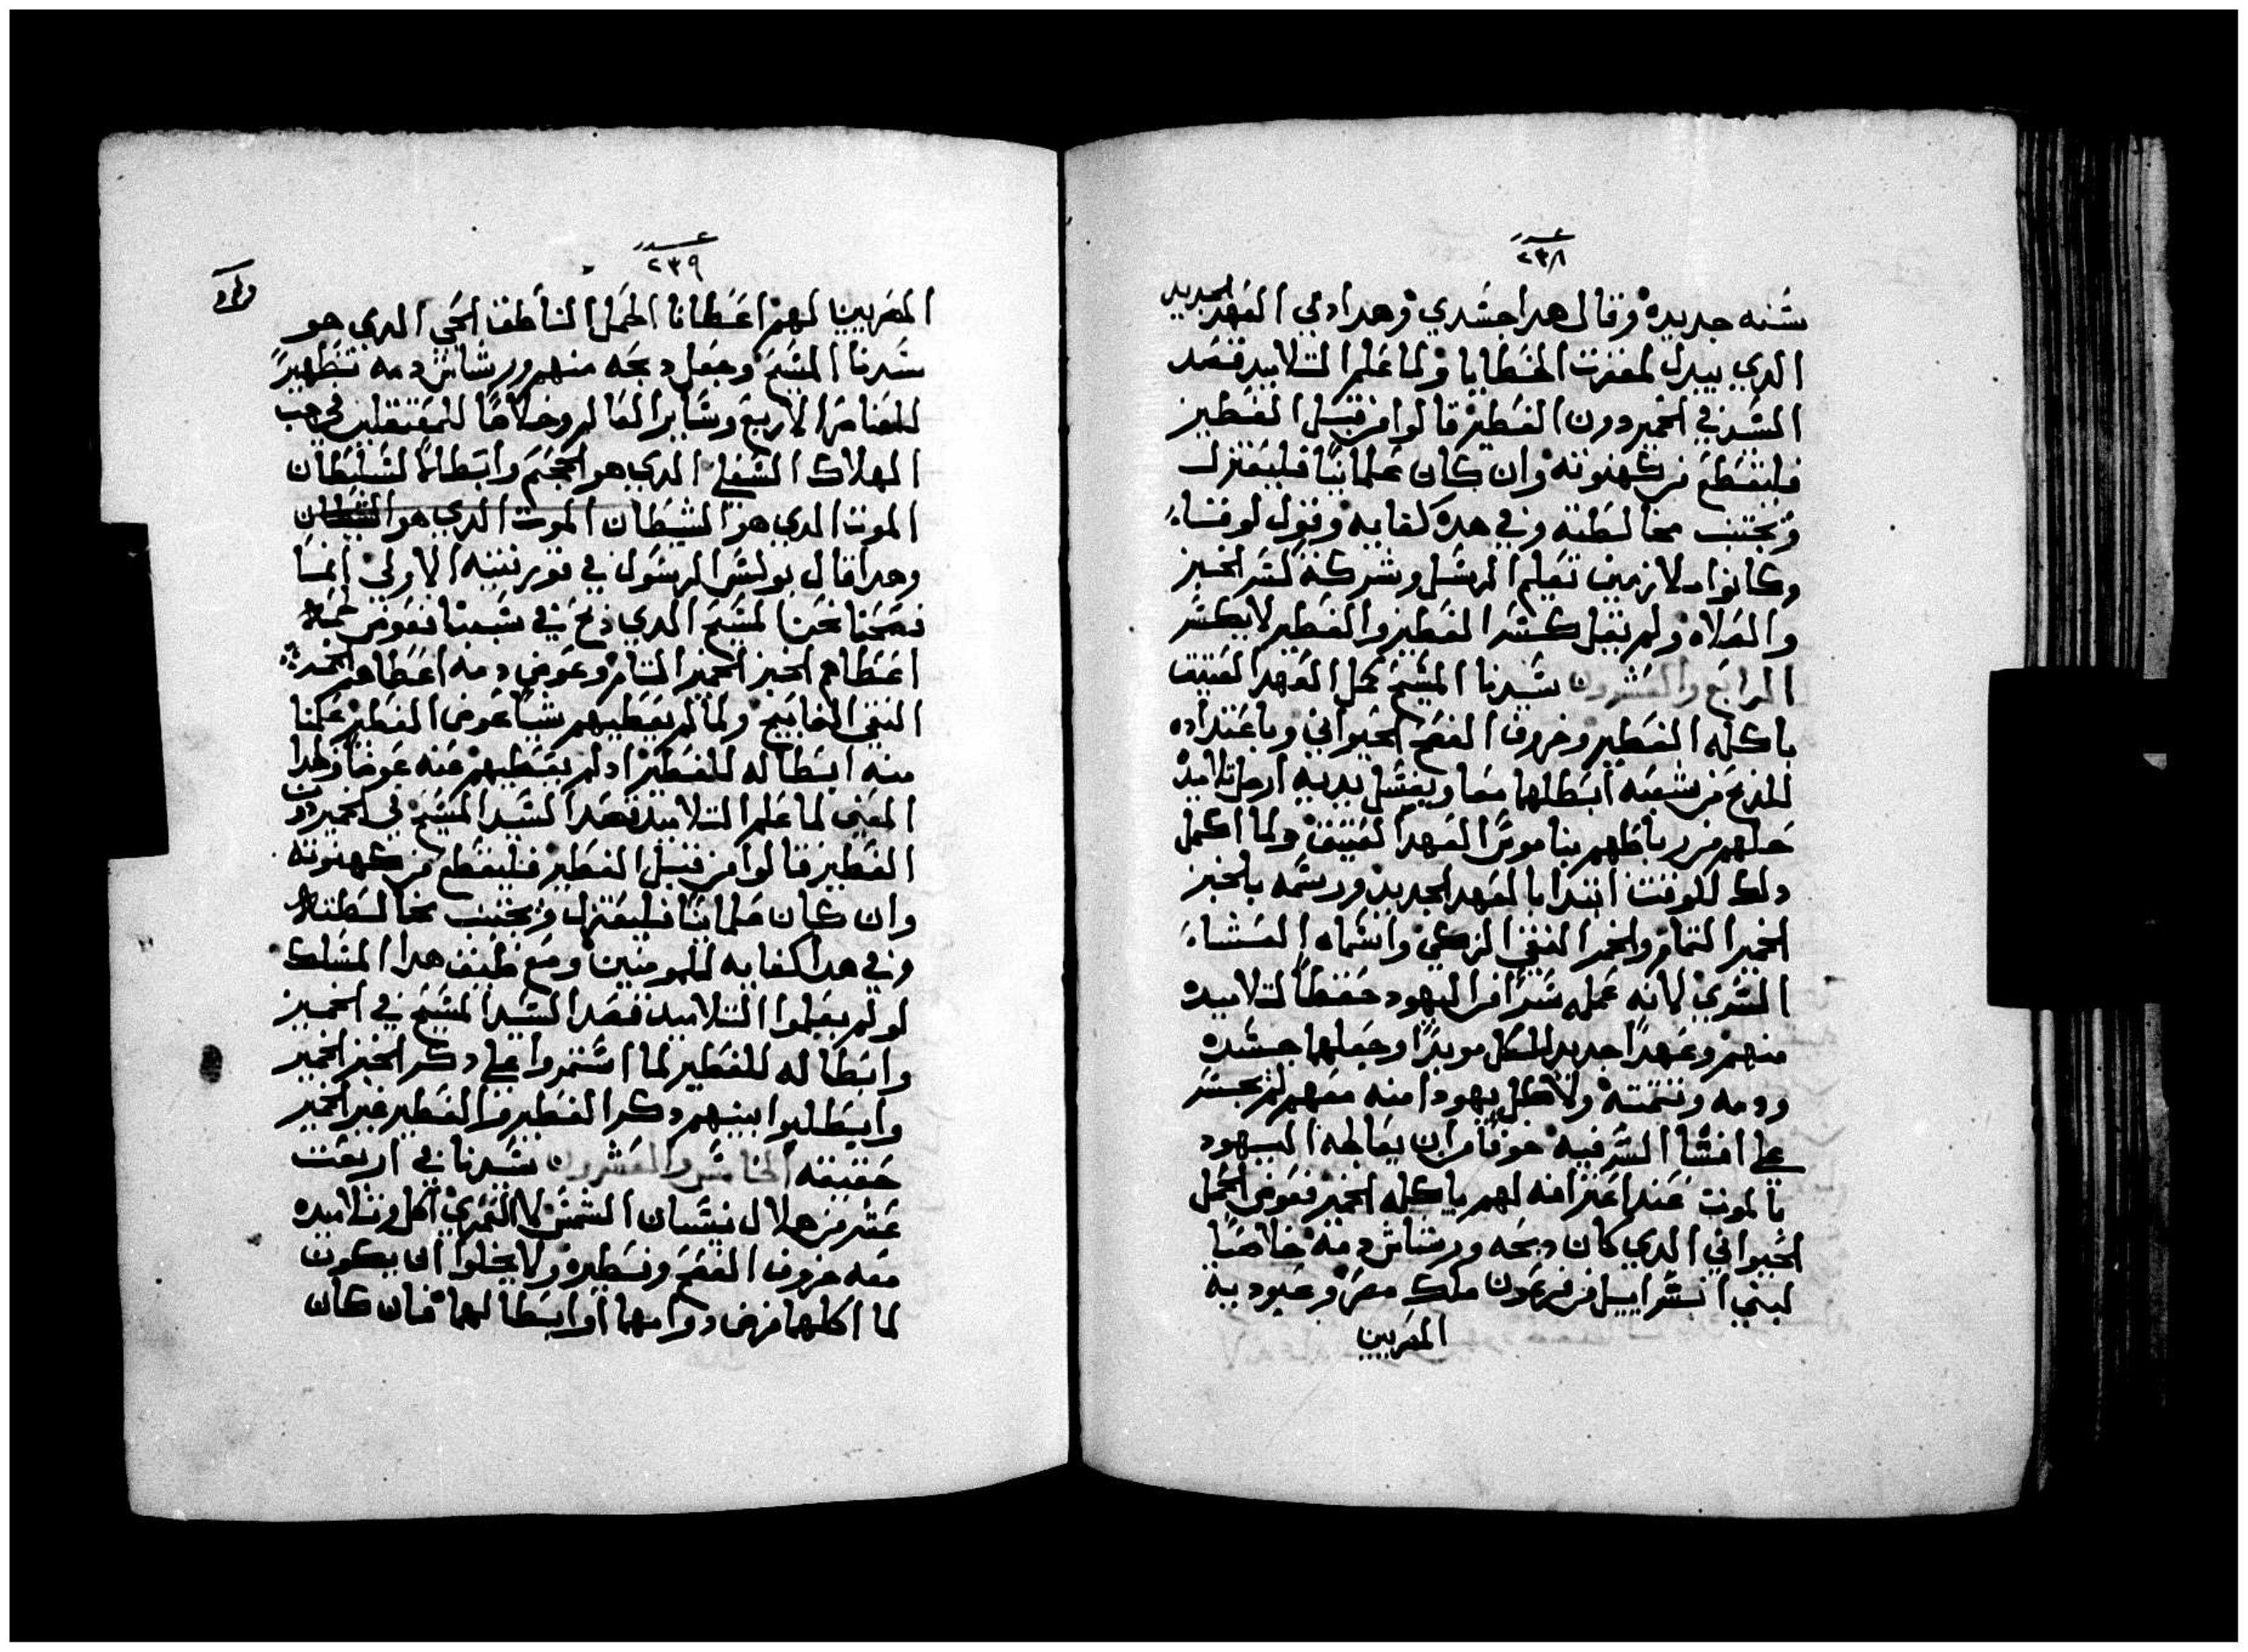 عدد
٢٣٨
سنه جديده وقال هدا جسدي وهدا دمي العهد الجديد
الدي يبدل لمغفرت الخطايا ولما علم التلاميد قصد
السيد في الخمير دون الفطير قالوا من قبل الفطير
فليقطع من كهنوته وان كان علمانيا فليعتزل
وتجتنب مخالطته وفي هده كفايه وقول لوقا
وكانوا ملازمين تعليم الرسل وشركة كسر الخبز
والصلاه ولم يقل كسر الفطير والفطير لا يكسر
الرابع والعشرون سيدنا المسيح كمل العهد العتيق
باكله الفطير وخروف الفصح الحيواني وباعتداده
للدبح من شعبه ابطلهما معا وبغسل يديه ارجل تلاميده
حلهم من رباطهم بناموس العهد العتيق ولما اكمل
دلك للوقت ابتدا بالعهد الجديد ورسمه بالخبز
الخمير التام والخمر النقي الزكي واسماه العشاء
السري لانه عمله سرا من اليهود حفظا لتلاميده
منهم وعهدا جديدا للكل موبدا وجعلهما جسده
ودمه ونعمته ولاجل يهودا منه معهم لم يجسر
على افشا السر فيه خوفا من ان يعاجله اليهود
بالموت عند اعترافه لهم باكله الخمير فعوض الحمل
الحيواني الدي كان دبحه ورشاش دمه خلاصا
لبني اسراييل من فرعون ملك مصر وعبودية
المصريين
عدد
٢٣٩
المصريين لهم اعطانا الحمل الناطق الحي الدي هو
سيدنا المسيح وجعل دبحه منهم ورشاش دمه تطهيرا
للعناصر الاربع وساير العالم وخلاصا للمعتقلين في جب
الهلاك السفلي الدي هو الجحيم وابطالا لسلطان
الموت الدي هو الشيطان الموت الدي هو الشيطان
وهدا قال بولس الرسول في قورنتيه الاولي انما
فصحنا نحن المسيح الدي دبح في سببنا فعوض
اعطاهم الخبز الخمير التام وعوض دمه اعطاهم الخمر
النقي الفايح ولما لم يعطيهم شيا عوض الفطير علمنا
منه ابطاله للفطير اد لم يعطيهم عنه عوضا ولهدا
المعني لما علم التلاميد قصد السيد المسيح في الخمير دون
الفطير قالوا من قبل الفطير فليقطع من كهنوته
وان كان علمانيا فليعتزل وتجتنب مخالطته
وفي هدا كفايه للمومنين ومع طيف هدا المسلك
لو لم يعلموا التلاميد قصد السيد المسيح في الخمير
وابطاله للفطير لما استمروا على دكر الخبز الخمير
وابطلوا بينهم دكر الفطير والفطير غير الخمير
حقيقه الخامس والعشرون سيدنا في اربعت
عشر من هلال نيسان الشمس لا القمري اكل وتلاميده
معه خروف الفصح وفطيره ولا يخلوا ان يكون
لما اكلهما فرض دوامهما او ابطالهما فان كان